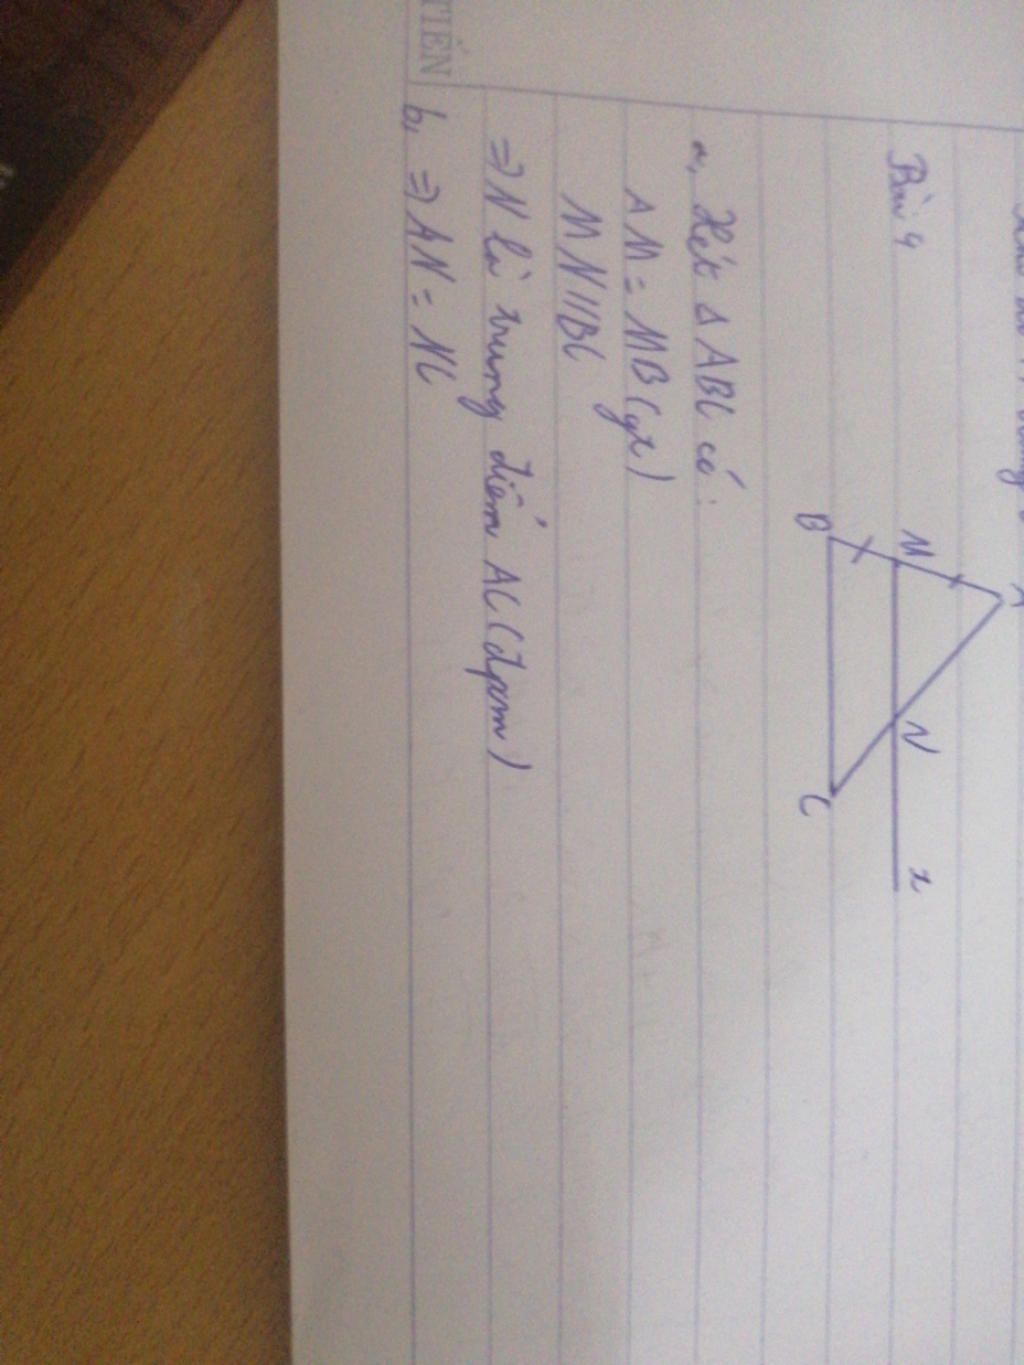 Bài 4
A
M
N
x
B
C
a, Xét Δ ABC có:
AM = MB (gt)
MN//BC
⇒ N là trung điểm AC (đpcm)
b, ⇒ AN = NC
TIẾN